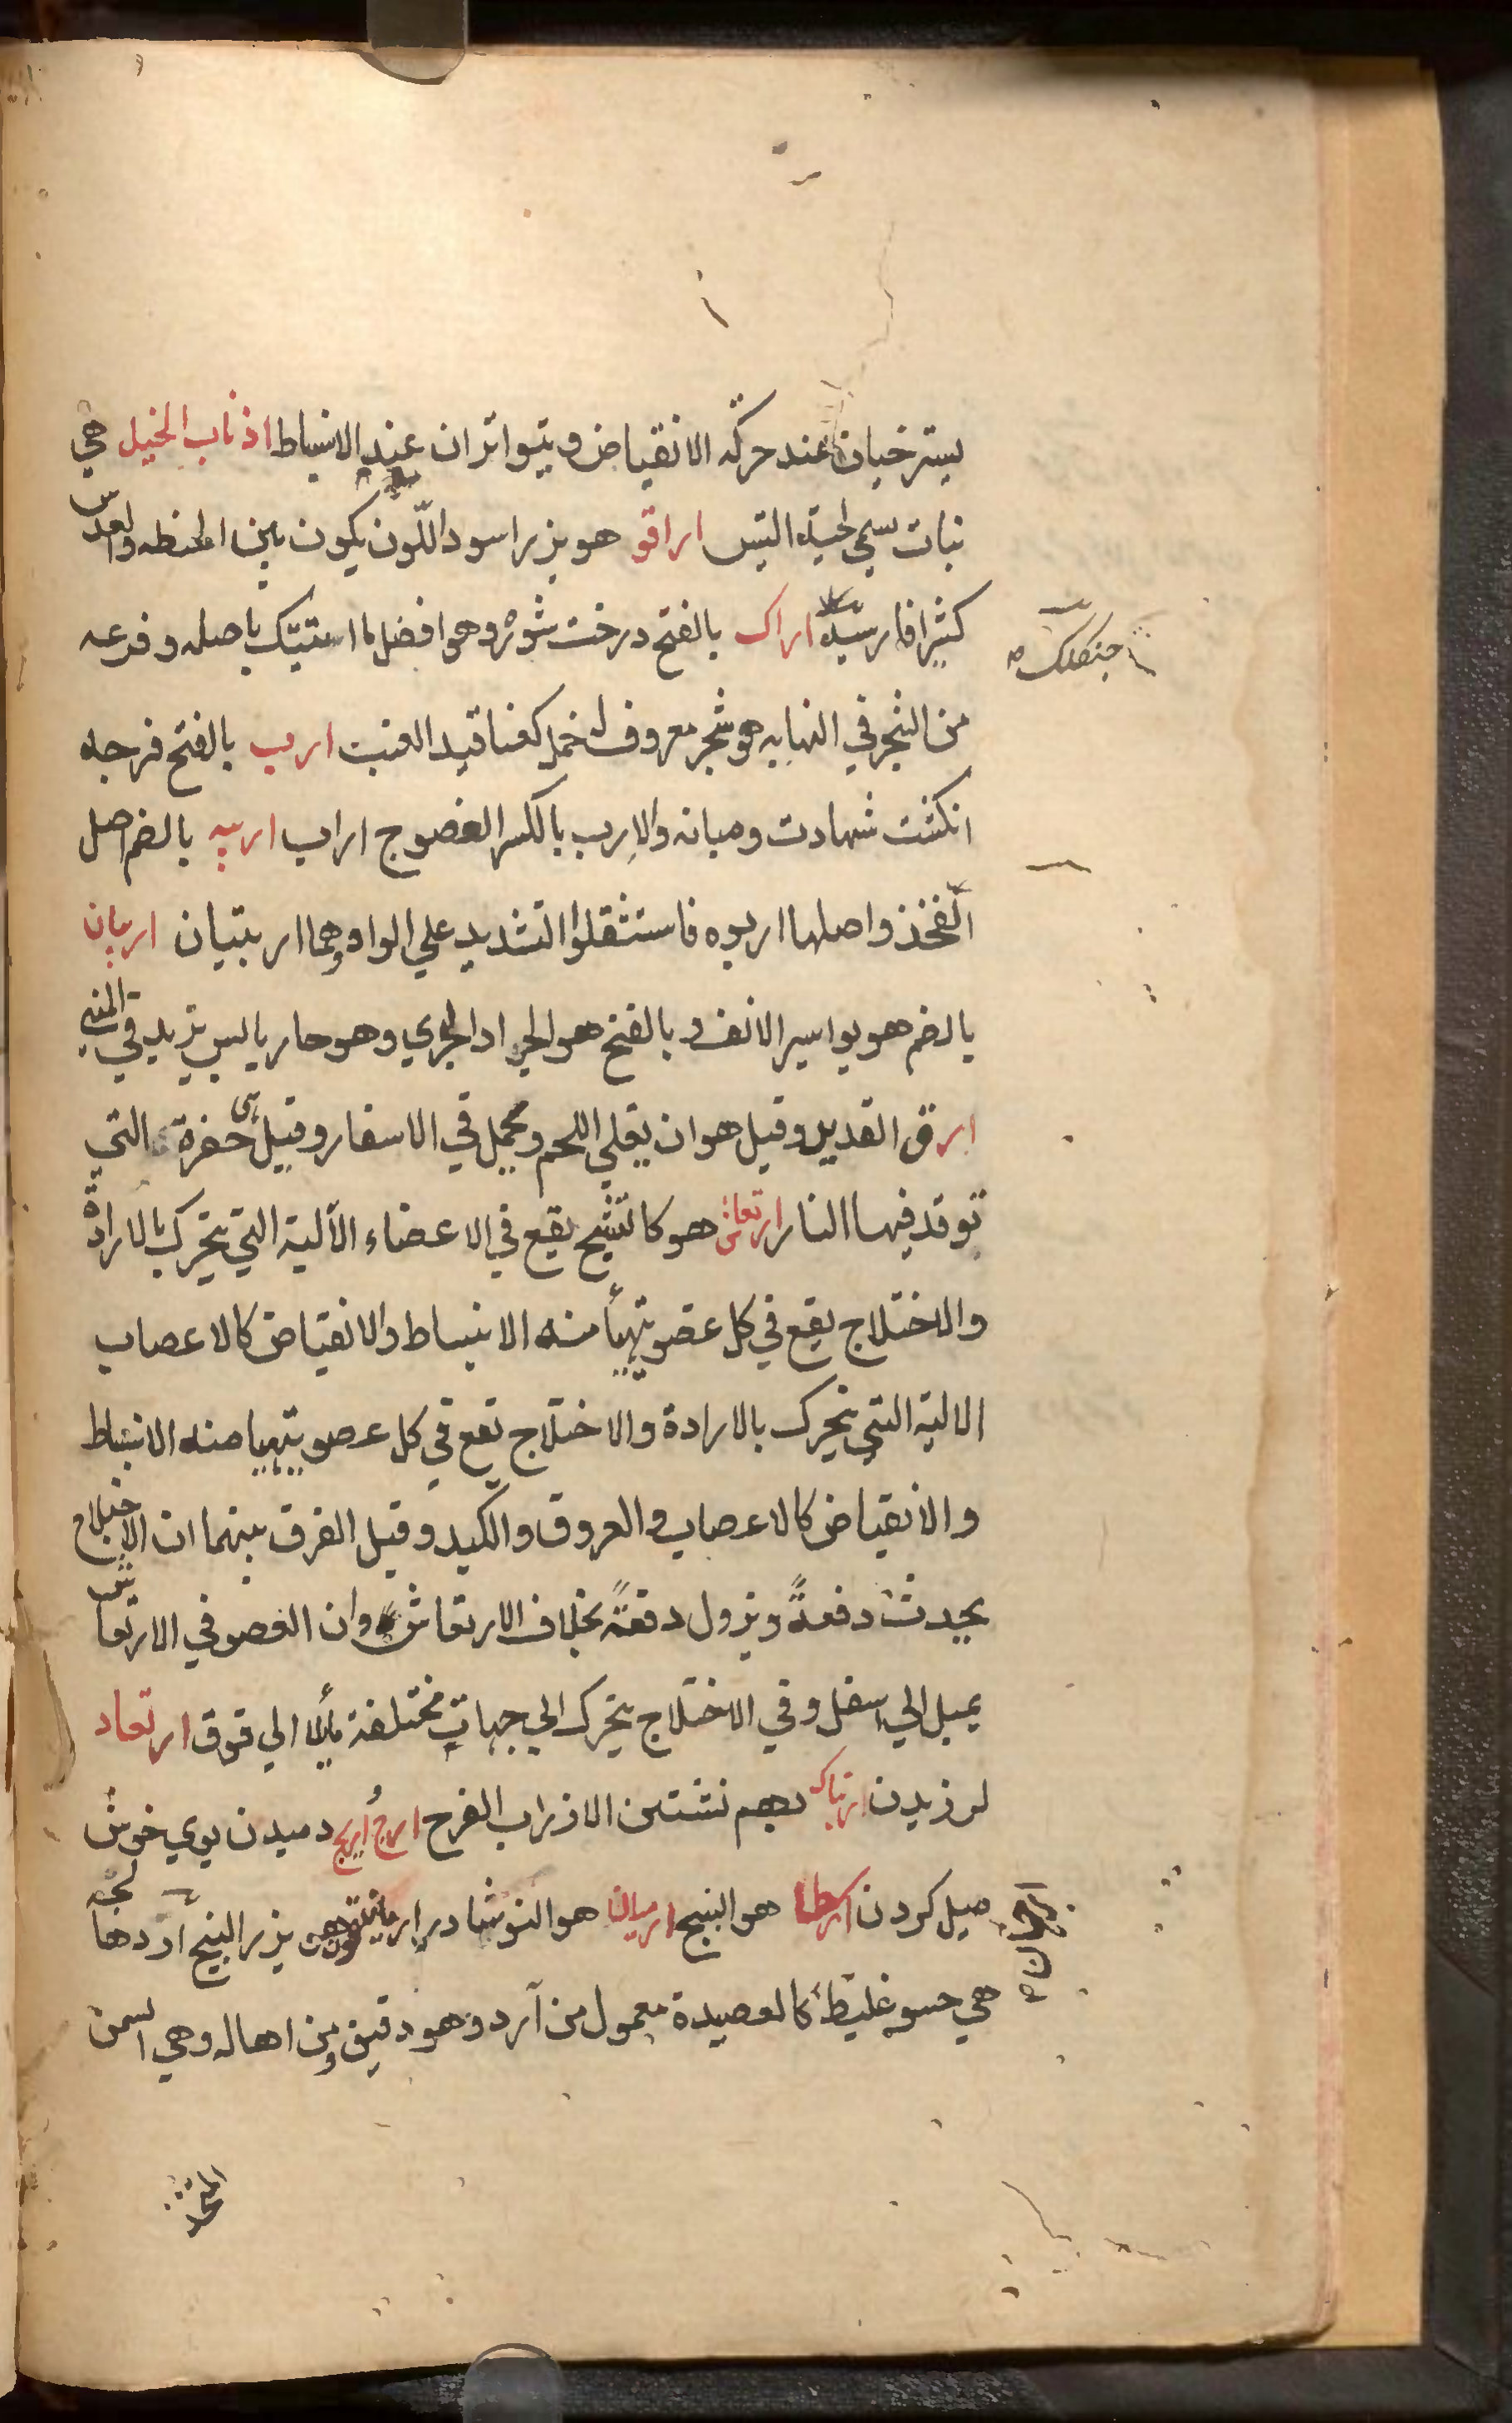 يسترخيان عند حركه الانقباض ويتواتران عند الانبساط اذناب الخيل هي
نبات يسمي لحية التيس اراقو هو بزر اسود اللّون يكون بين الحنطه والعدس
كثيرا فارسية اراك بالفتح درخت شوره وهو افضل ما استيّك باصله وفرعه
من الشجر في النهايه هو شجر معروف له خمل كعناقيد العنب ارب بالفتح فرجه
انكشت شهادت وميانه والاِرب بالكسر العضو ج اراب اربيه بالضم اصل
الفخذ واصلها اربوه فاستثقلوا التشديد علي الواو وهما اربتيان اربيان
بالضم هو بواسير الانف و بالفتح هو الجراد البحري وهو حار يابس يزيد في المني
ارة القديد وقيل هو ان يغلي اللحم ويحمل في الاسفار وقيل هي حفرة التي
توقد فيها النار ارتعاش هو كالتشنج يقع في الاعضاء الآلية التي يتحرك بالارادة
والاختلاج يقع في كل عضو يتهيأ منه الانبساط والانقباض كالاعصاب
الالية التي يتحرك بالارادة والاختلاج تقع في كل عصو يتهيا منه الانبساط
والانقباض كالاعصاب والعروق والكبد وقيل الفرق بينهما ان الاختلاج
يحدث دفعةً ويزول دفعةً بخلاف الارتعاش وان العضو في الارتعاش
يميل الي اسفل وفي الاختلاج يتحرك الي جهات مختلفة مأيلا الي فوق ارتعاد
لرزيدن ارتباك بهم نشتن الاذراب الفرح ارج اريج دميدن بوي خوش
ميل كردن ارطا هو البنج ارميان هو النوشادر بزر البنج آردهالجه
هي حسو غليظ كالعصيدة معمول من آرد وهو دقيق ومن اهاله وهي السمن